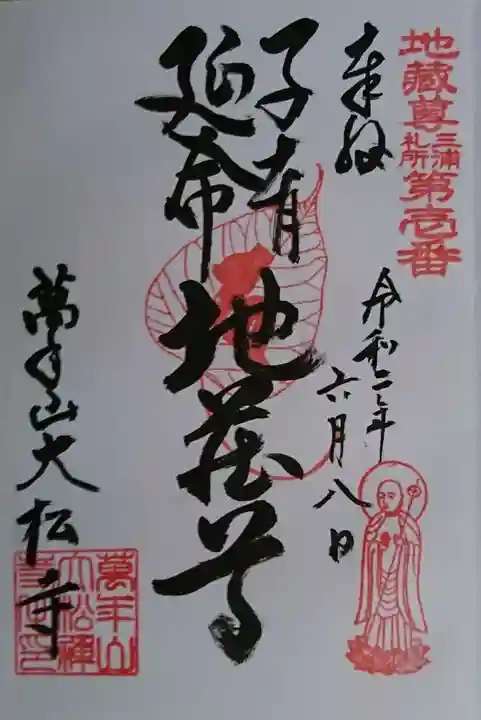 地藏尊三浦札所第壱番
令和二年
六月八日
子育
延命
地蔵尊
萬年山大松寺
萬年山
大松禅